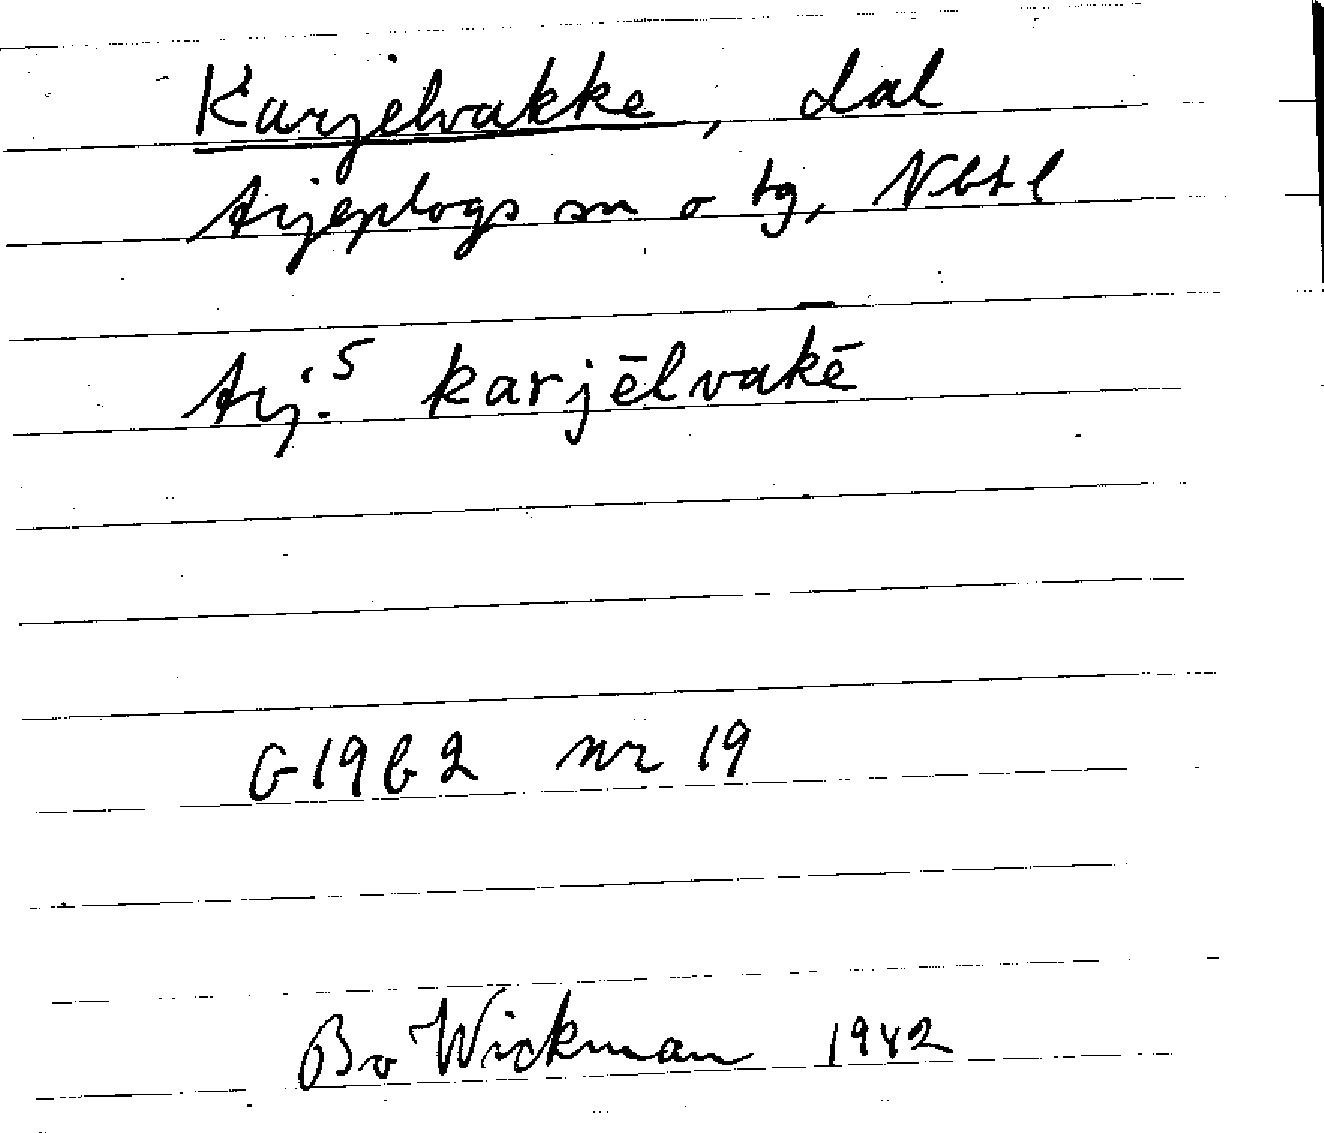 Karjelvakke, dal
Arjeplogs sn o tg, Nbtl
Arj.5 karjēlvakē
G19b2 nr 19
Bo Wickman 1942